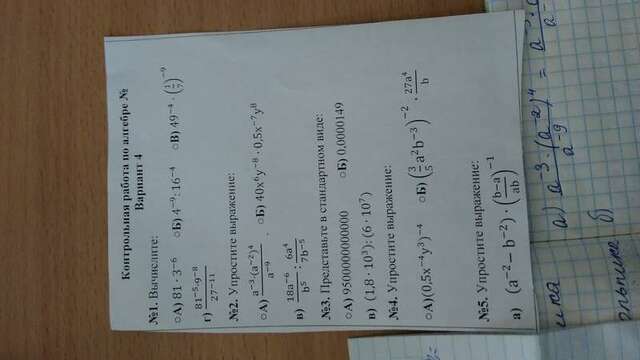 Контрольная работа по алгебре №
Вариант 4
№1. Вычислите:
○А) 81 · 3⁻⁶ ○Б) 4⁻⁹: 16⁻⁴ ○В) 49⁻⁴ · (1/7)⁻⁹
г) 81⁻⁵·9⁻⁸/27⁻¹¹
№2. Упростите выражение:
○А) a⁻³·(a⁻²)⁴/a⁻⁹ . ○Б) 40x⁶y⁻⁸ · 0,5x⁻⁷y⁸
в) 18a⁻⁶/b⁵ : 6a⁴/7b⁻⁵
№3. Представьте в стандартном виде:
○А) 9500000000000 ○Б) 0,0000149
в) (1,8 · 10³): (6 · 10⁷)
№4. Упростите выражение:
○А)(0,5x⁻⁴y³)⁻⁴ ○Б) (3/5 a²b⁻³)⁻² · 27a⁴/b
№5. Упростите выражение:
а) (a⁻² − b⁻²) · (b−a/ab)⁻¹
а) a⁻³·(a⁻²)⁴/a⁻⁹ =
б)